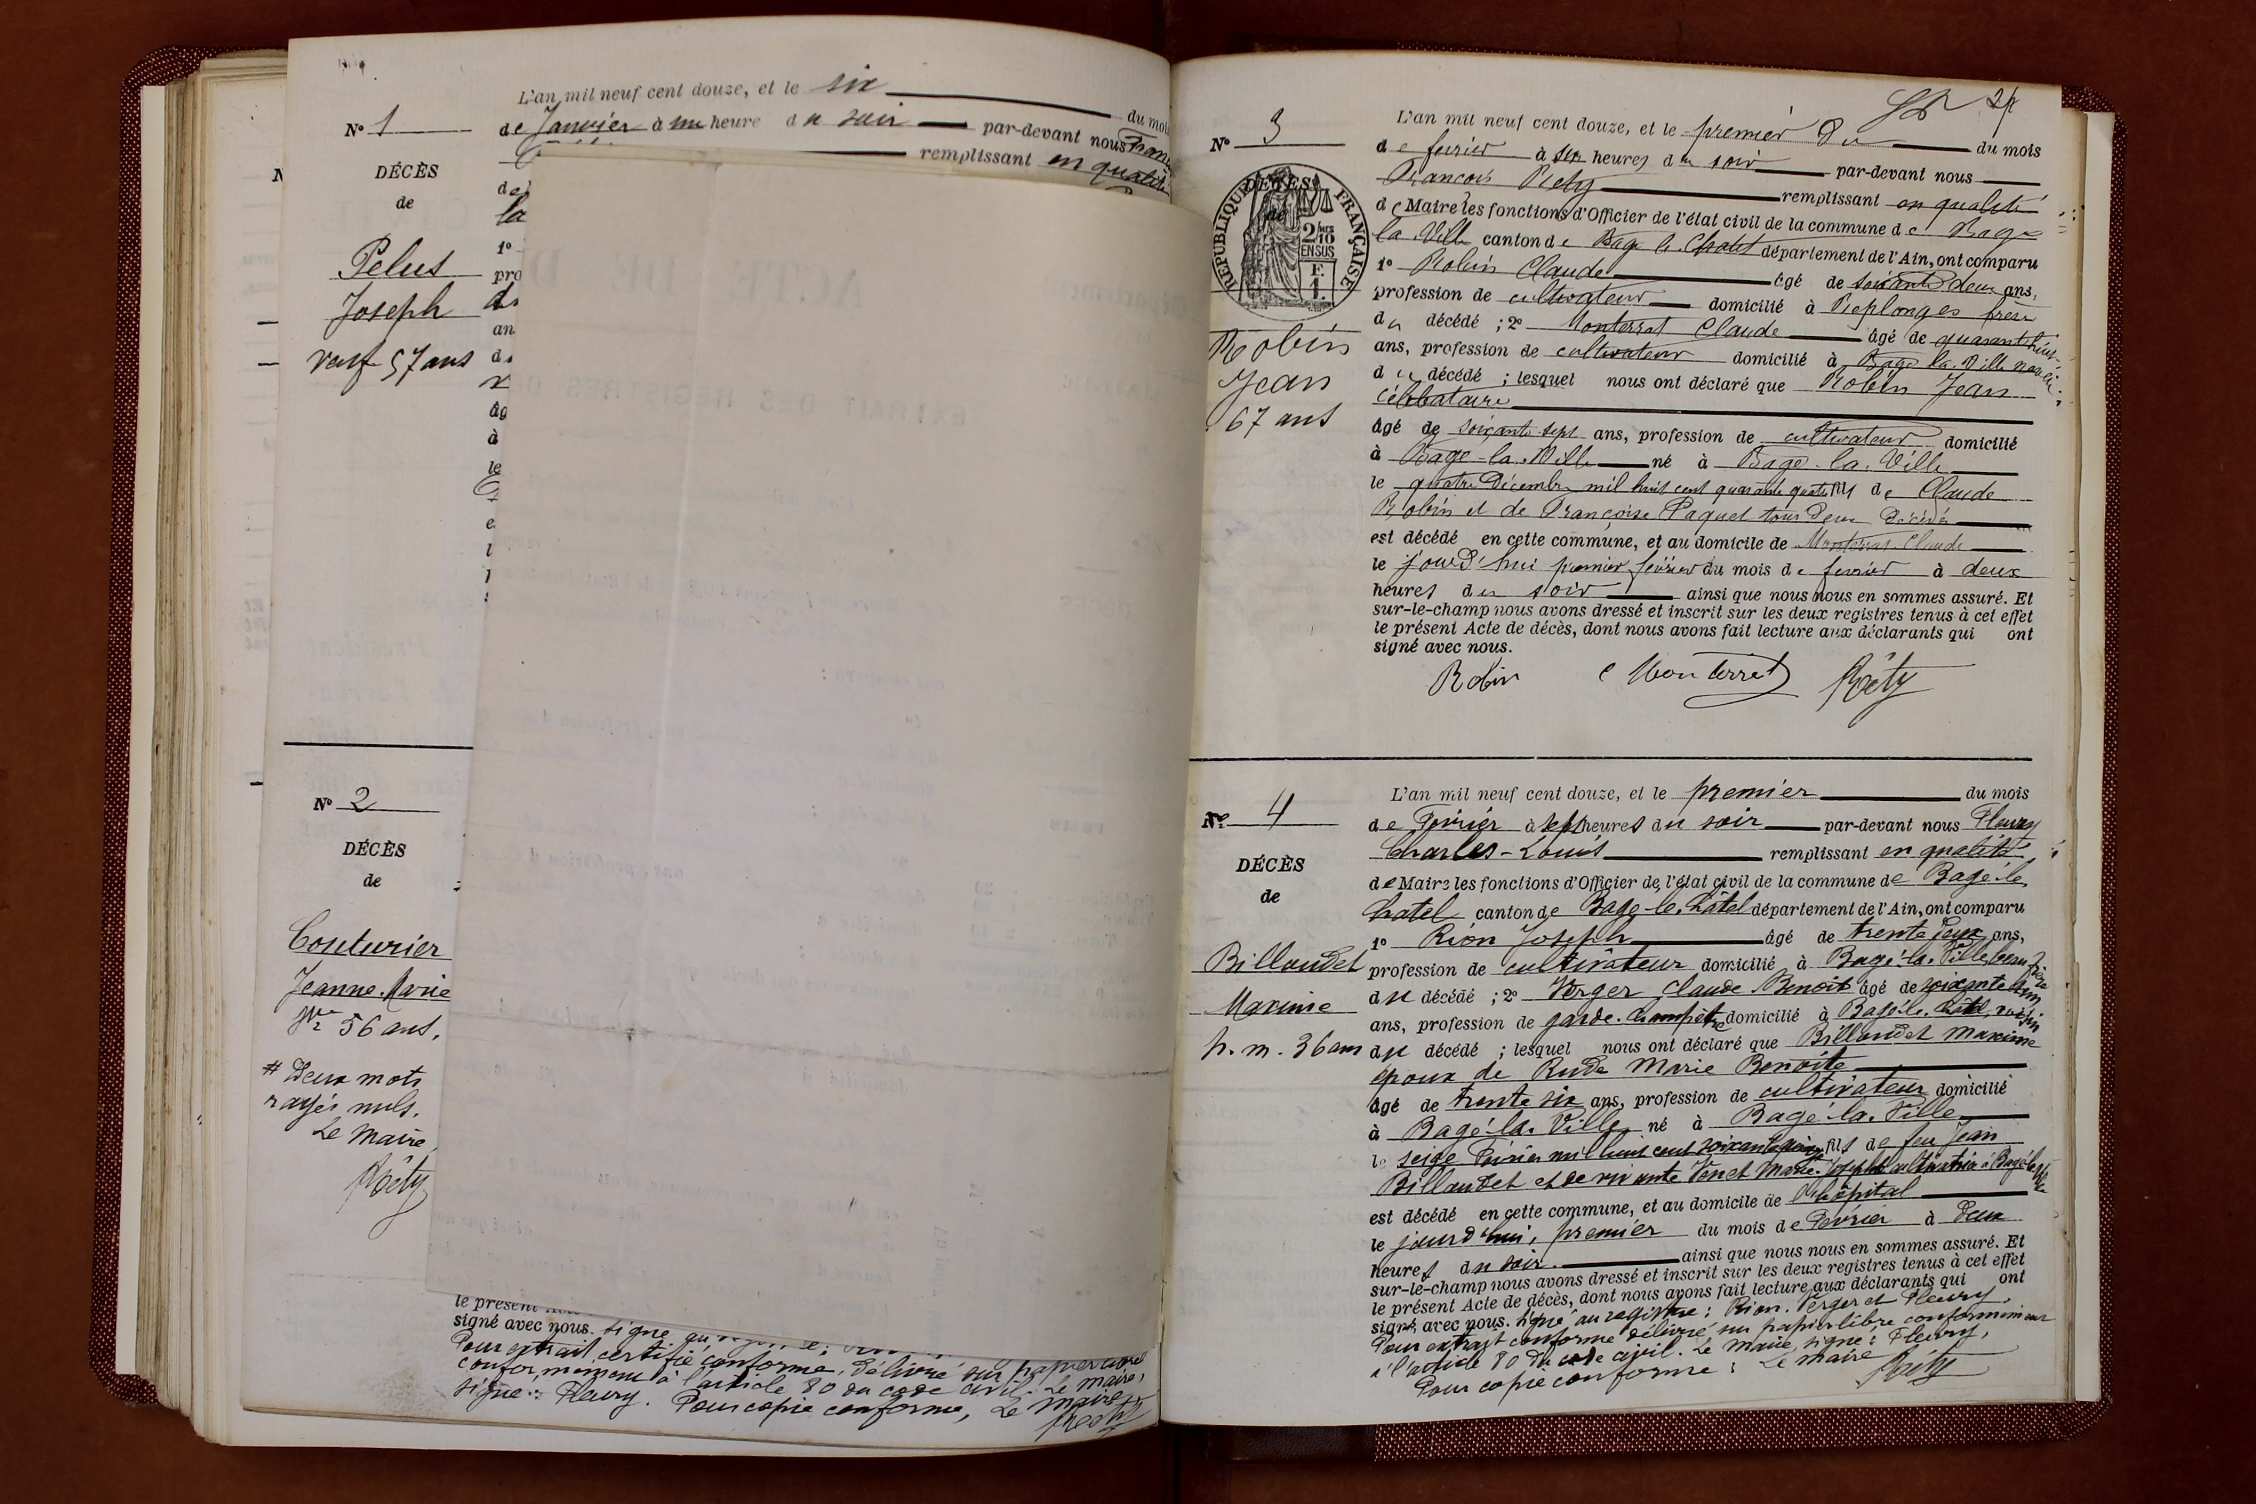 L'an mil neuf cent douze, et le six du mois
N° 1
de Janvier à une heure du soir par-devant nous
remplissant en qualité
DÉCÈS
de
la
1°
Pelus
pro
Joseph
an
veuf 57 ans
âg
à
le
N° 2
DÉCÈS
de
Couturier
Jeanne-Marie
56 ans.
# Deux mots
rayés nuls.
Le Maire,
Réty
le présent
signé avec nous. signé au
Pour extrait certifié conforme, délivré sur papier libre
conformément à l'article 80 du code civil. Le maire,
signé : Fleury. Pour copie conforme, Le maire
Réty
N° 3
L'an mil neuf cent douze, et le premier du du mois
de février à six heures du soir par-devant nous
François Réty remplissant en qualité
de Maire les fonctions d'Officier de l'état civil de la commune de Bagé
la Ville canton de Bagé le Chatel département de l'Ain, ont comparu
1° Robin Claude âgé de soixante deux ans,
profession de cultivateur domicilié à Replonges frère
du décédé ; 2° Monterrat Claude âgé de quarante huit
ans, profession de cultivateur domicilié à Bagé la Ville
du décédé ; lesquels nous ont déclaré que Robin Jean
célibataire
âgé de soixante sept ans, profession de cultivateur domicilié
à Bagé-la-Ville né à Bagé-la-Ville
le quatre Décembre mil huit cent quarante quatre fils de Claude
Robin et de Françoise Paquet tous deux décédés
est décédé en cette commune, et au domicile de Monterrat Claude
le jourd'hui premier février du mois de février à deux
heures du soir ainsi que nous nous en sommes assuré. Et
sur-le-champ nous avons dressé et inscrit sur les deux registres tenus à cet effet
le présent Acte de décès, dont nous avons fait lecture aux déclarants qui ont
signé avec nous.
Robin C Monterrat Réty
DÉCÈS
de
RÉPUBLIQUE FRANÇAISE
2/10
EN SUS
F.
1.
Robin
Jean
67 ans
N° 4
L'an mil neuf cent douze, et le premier du mois
de Février à sept heures du soir par-devant nous Fleury
Charles-Louis remplissant en qualité
de Maire les fonctions d'Officier de l'état civil de la commune de Bagé-le-
Chatel canton de Bagé-le-Châtel département de l'Ain, ont comparu
1° Rion Joseph âgé de trente deux ans,
profession de cultivateur domicilié à Bagé-la-Ville beau frère
du décédé ; 2° Verger Claude Benoit âgé de soixante
ans, profession de garde-champêtre domicilié à Bagé-le-Châtel voisin
du décédé ; lesquels nous ont déclaré que Billaudet Maxime
époux de Rude Marie Benoite
âgé de trente six ans, profession de cultivateur domicilié
à Bagé-la-Ville né à Bagé-la-Ville
le seize Février mil huit cent soixante fils de feu Jean
Billaudet et de vivante Vonet Marie-Josephte cultivatrice à Bagé-la-Ville
est décédé en cette commune, et au domicile de l'hôpital
le jourd'hui, premier du mois de Février à deux
heures du soir. ainsi que nous nous en sommes assuré. Et
sur-le-champ nous avons dressé et inscrit sur les deux registres tenus à cet effet
le présent Acte de décès, dont nous avons fait lecture aux déclarants qui ont
signé avec nous. signé au registre : Rion. Verger et Fleury.
Pour extrait conforme délivré sur papier libre conformément
à l'article 80 du code civil. Le maire, signé : Fleury,
Pour copie conforme : Le maire
Réty
DÉCÈS
de
Billaudet
Maxime
h. m. 36 ans